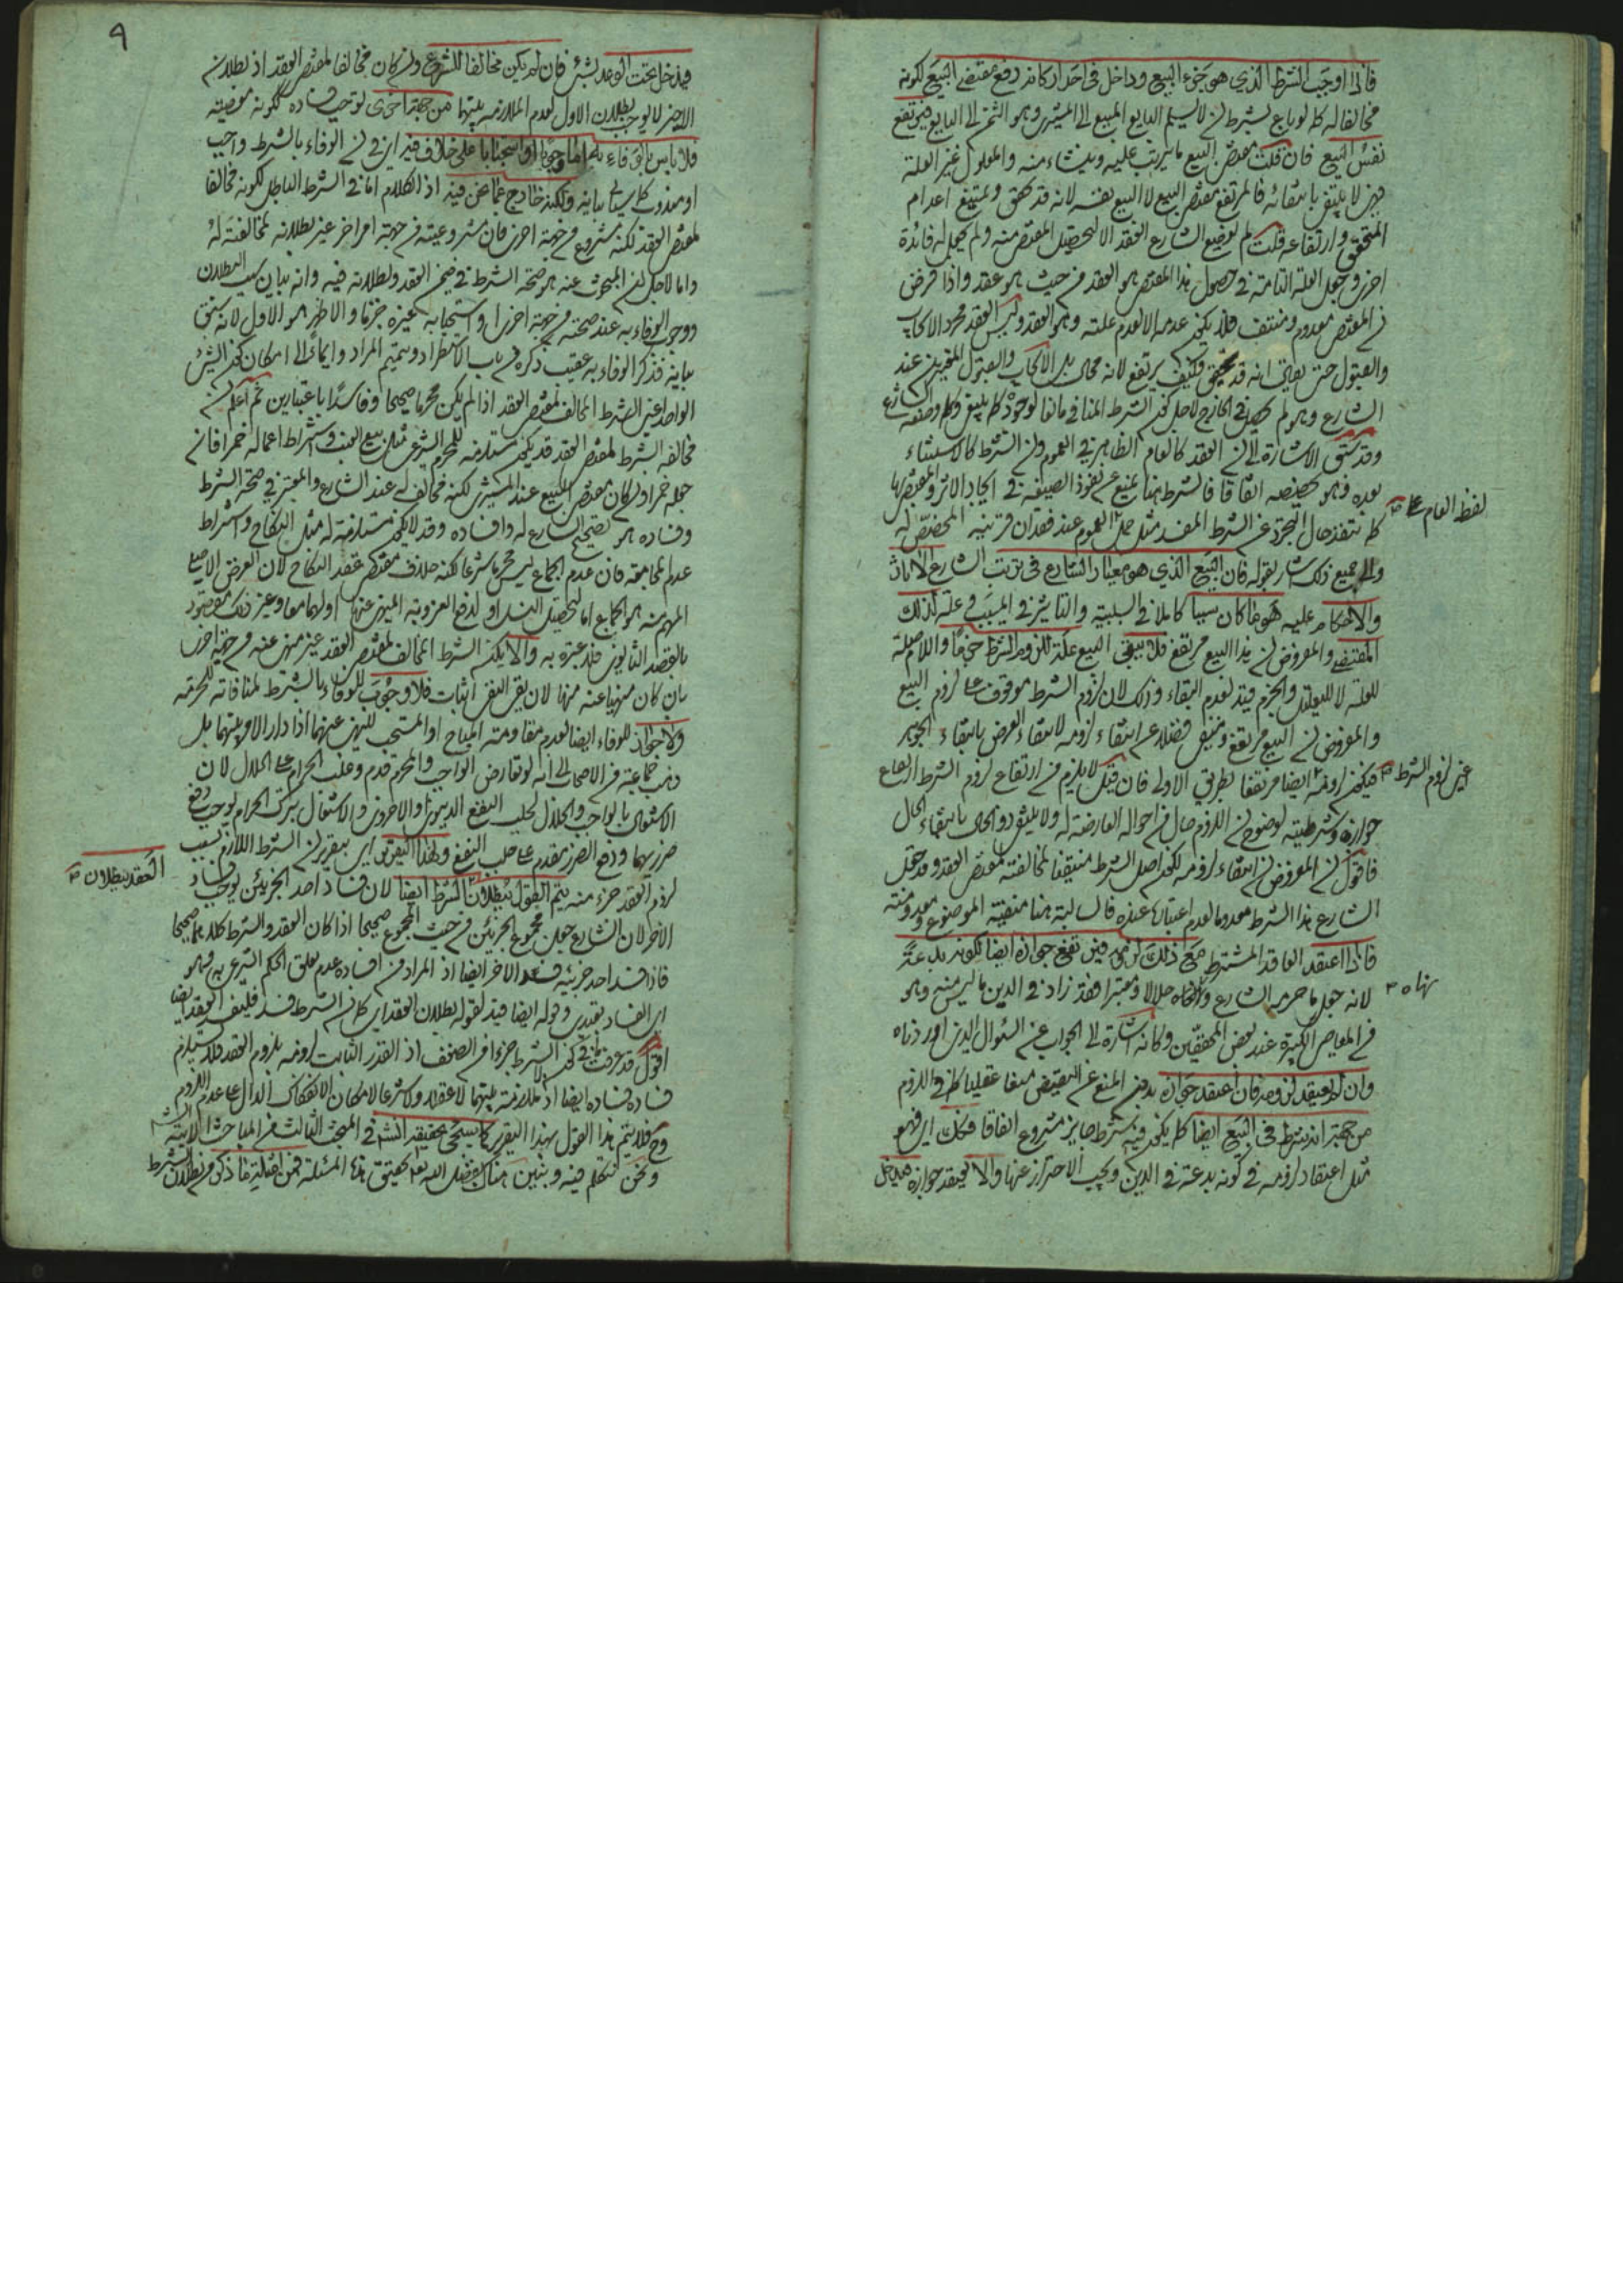 فاذا اوجب الشرط الذي هو جزء البيع وداخل في احد اركانه رفع مقتضى البيع لكونه
مخالفا له كما لو باع بشرط ان لا يسلم البايع المبيع الى المشتري وهو الثمن الى البايع فيرتفع
نفس البيع فان قلت مقتضى البيع ما يترتب عليه وينشاء منه والمعلول غير العلة
فهي لا ينتفي بانتفائه فالمرتفع مقتضى البيع لا البيع نفسه لانه قد تحقق ويمتنع اعدام
المتحقق وارتفاعه قلت لم يوضع الشارع العقد الا لتحصيل المقتضى منه ولم يجعل له فائدة
اخرى وجعل العلة التامة في حصول هذا المقتضى هو العقد من حيث هو عقد واذا فرض
ان المقتضى معدوم ومنتف فلا يكون عدمه الا لعدم علته وهو العقد وليس العقد مجرد الايجاب
والقبول حتى يقال انه قد تحقق فكيف يرتفع لانه محال بل الايجاب والقبول المعتبرين عند
الشارع وهو لم يحصل في الخارج لاجل كون الشرط المنافي مانعا لوجوده كما ينبغي وكما وضعه الشارع
وقد سبق الاشارة الى ان العقد كالعام الظاهر في العموم وان الشرط كالاستثناء
بعده وهو تخصيصه اتفاقا فالشرط هنا يمنع عن نفوذ الصيغة في ايجاد الاثر والمقتضى لها
لفظ العام على
كما ينفذ حال التجرد عن الشرط المفسد مثل حمل العموم عند فقدان قرينة المخصص له
والى جميع ذلك اشار بقوله فان البيع الذي هو معيار الشارع في ترتب الشارع الاثار
والاحكام عليه هو ما كان سببا كاملا في السببية والتاثير في المسبب وعلة لذلك
المقتضى والمفروض ان هذا البيع مرتفع فلا يبقى البيع علة للزوم الشرط حتما واللام صلة
للعلة لا للتعليل والجزم قيد لعدم البقاء وذلك لان لزوم الشرط موقوف على لزوم البيع
والمفروض ان البيع مرتفع ومنتف فضلا عن انتفاء لزومه لانتفاء العرض بانتفاء الجوهر
عين لزوم الشرط
فيكون لزومه ايضا مرتفعا بطريق الاولى فان قيل لا يلزم من ارتفاع لزوم الشرط ارتفاع
جوازه وشرطيته لوضوح ان اللزوم حال من احواله العارضة له ولا ينتفي ذو الحال بانتفاء الحال
فاقول ان المفروض ان انتفاء لزومه لكون اصل الشرط منتفيا لمخالفته لمقتضى العقد وقد جعل
الشارع هذا الشرط معدوما لعدم اعتباره عنده فالسالبة هنا منتفية الموضوع ومعدومته
فاذا اعتقد العاقد المشترط مع ذلك لزومه فينتفع جوازه ايضا لكونه بدعة
لانه جعل ما حرمه الشارع والغاه حلالا ومعتبرا فقد زاد في الدين ما ليس منه وهو
من المعاصي الكبيرة عند بعض المحققين وكانه اشارة الى الجواب عن السؤال الذي اوردناه
وان لم يعتقد لزومه فان اعتقد جوازه بدون المنع عن النقيض منعا عقليا كما في اللزوم
من جهة انه شرط في البيع ايضا كما يكون فيه شرط جايز مشروع اتفاقا فكك اي فهو
مثل اعتقاد لزومه في كونه بدعة في الدين ويجب الاحتراز عنها والا يعتقد جوازه فيدخل
٩
فيدخل تحت الوعد بشئ فان لم يكن مخالفا للشرع وان كان مخالفا لمقتضى العقد اذ بطلان
الاخير لا يوجب بطلان الاول لعدم الملازمة بينهما من جهة اخرى توجب فساده لكونه معصية
فلا باس بالوفاء به اما وجوبا او استحبابا على خلاف فيه اي في ان الوفاء بالشرط واجب
او مندوب كما سياتي بيانه ولكنه خارج عما نحن فيه اذ الكلام اما في الشرط الباطل لكونه مخالفا
لمقتضى العقد لكنه مشروع من جهة اخرى فان مشروعيته من جهة امر اخر غير بطلانه لمخالفته له
واما لاجل ان المبحوث عنه هو صحة الشرط في ضمن العقد وبطلانه فيه وانه بيان سبب البطلان
ووجوب الوفاء به عند صحته من جهة اخرى او استحبابه غيره جزما والاظهر هو الاول لانه سبق
بيانه فذكر الوفاء به عقيب ذكره من باب الاستطراد وتتميم المراد وايماء الى امكان كون الشئ
الواحد اعني الشرط المخالف لمقتضى العقد اذا لم يكن محرما صحيحا وفاسدا باعتبارين ثم اعلم ان
مخالفة الشرط لمقتضى العقد قد يكون مستلزمة للمحرم الشرعي مثل بيع العنب واشتراط اعماله خمرا فان
جعله خمرا وان كان مقتضى المبيع عند المشتري لكنه مخالف له عند الشارع والمعتبر في صحة الشرط
وفساده هو تصحيح الشارع له وافساده وقد لا يكون مستلزمة له مثل النكاح واشتراط
عدم المجامعة فان عدم الجماع ليس محرما شرعا لكنه خلاف مقتضى عقد النكاح لان الغرض الاصلي
المهم منه هو الجماع اما لتحصيل النسل او لدفع العزوبة المنهي عنها او لهما معا وغير ذلك مقصود
بالقصد الثانوي فلا عبرة به والا يكن الشرط المخالف لمقتضى العقد غير منهي عنه من جهة اخرى
بان كان منهيا عنه منها لان نفي النفي اثبات فلا وجوب للوفاء بالشرط لمنافاته للحرمة
ولا جواز للوفاء ايضا لعدم مقاومته المباح او المستحب للنهي عنهما اذا دار الامر بينهما بل
ذهب جماعة من الاصحاب الى انه لو تعارض الواجب والمحرم قدم وغلب الحرام على الحلال لان
الاشتغال بالواجب والحلال لجلب النفع الدنيوي والاخروي والاشتغال بترك الحرام يوجب دفع
ضررهما ودفع الضرر مقدم على جلب النفع وبهذا التقرير اي بتقرير ان الشرط اللازم بسبب
العقد ببطلان
لزوم العقد جزء منه يتم القول ببطلان الشرط ايضا لان فساد احد الجزئين يوجب فساد
الاخر لان الشارع جعل مجموع الجزئين من حيث المجموع صحيحا اذا كان العقد والشرط كلاهما صحيحا
فاذا فسد احد جزئيه فسد الاخر ايضا اذ المراد من افساده عدم تعلق الحكم الشرعي به وهو
اي الفساد بتعدي وقوله ايضا قيد لقوله بطلان العقد اي كما ان الشرط فسد فليفسد العقد ايضا
اقول قد عرفت في كون الشرط جزءا من الضعف اذ القدر الثابت لزومه بلزوم العقد فلا يستلزم
فساده فساده ايضا اذ لا ملازمة بينهما لا عقلا ولا شرعا لامكان الانفكاك الدال على عدم اللزوم
وح فلا يتم هذا القول بهذا التقرير كما سيجئ تحقيقه انشاء في المبحث الثالث من المباحث الاتية
ونحن نتكلم فيه ونبين هناك بفضل الله تعالى تحقيق هذه المسئلة فمن امثلة ما ذكر من بطلان الشرط